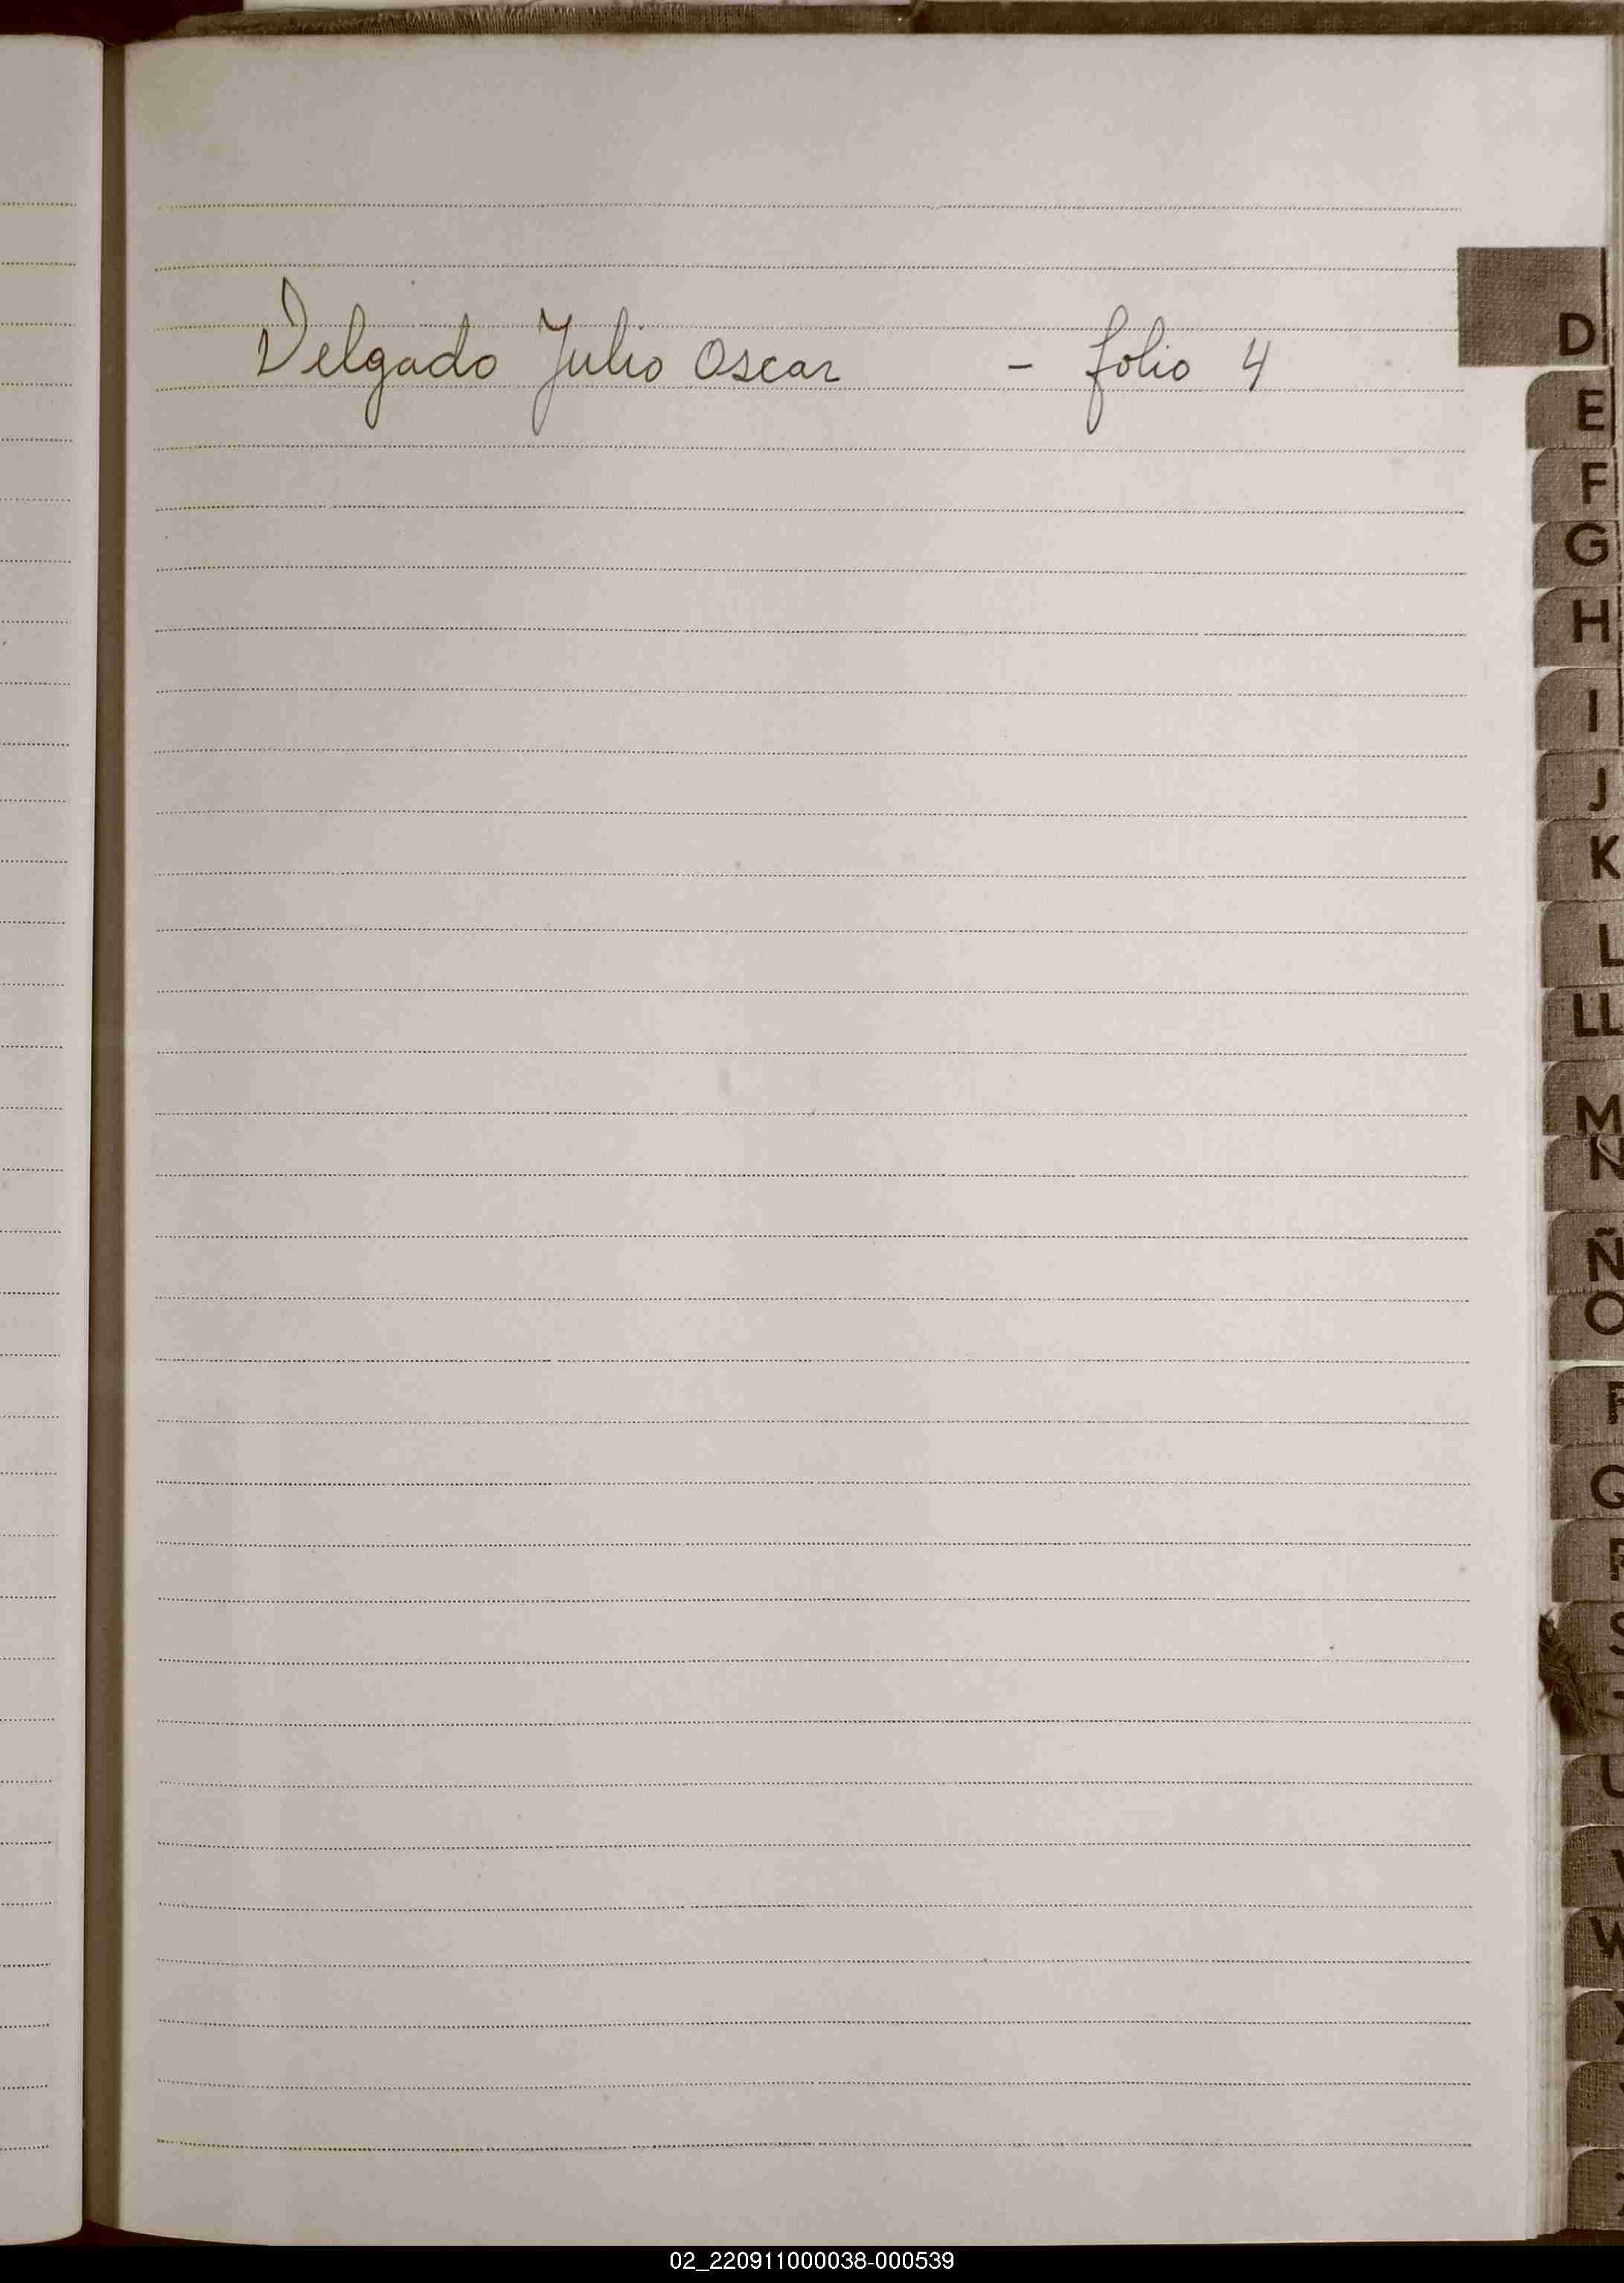 Delgado Julio Oscar - folio 4
D
E
F
G
H
I
J
K
L
LL
M
N
Ñ
O
P
Q
R
S
U
V
W
X
02_220911000038-000539